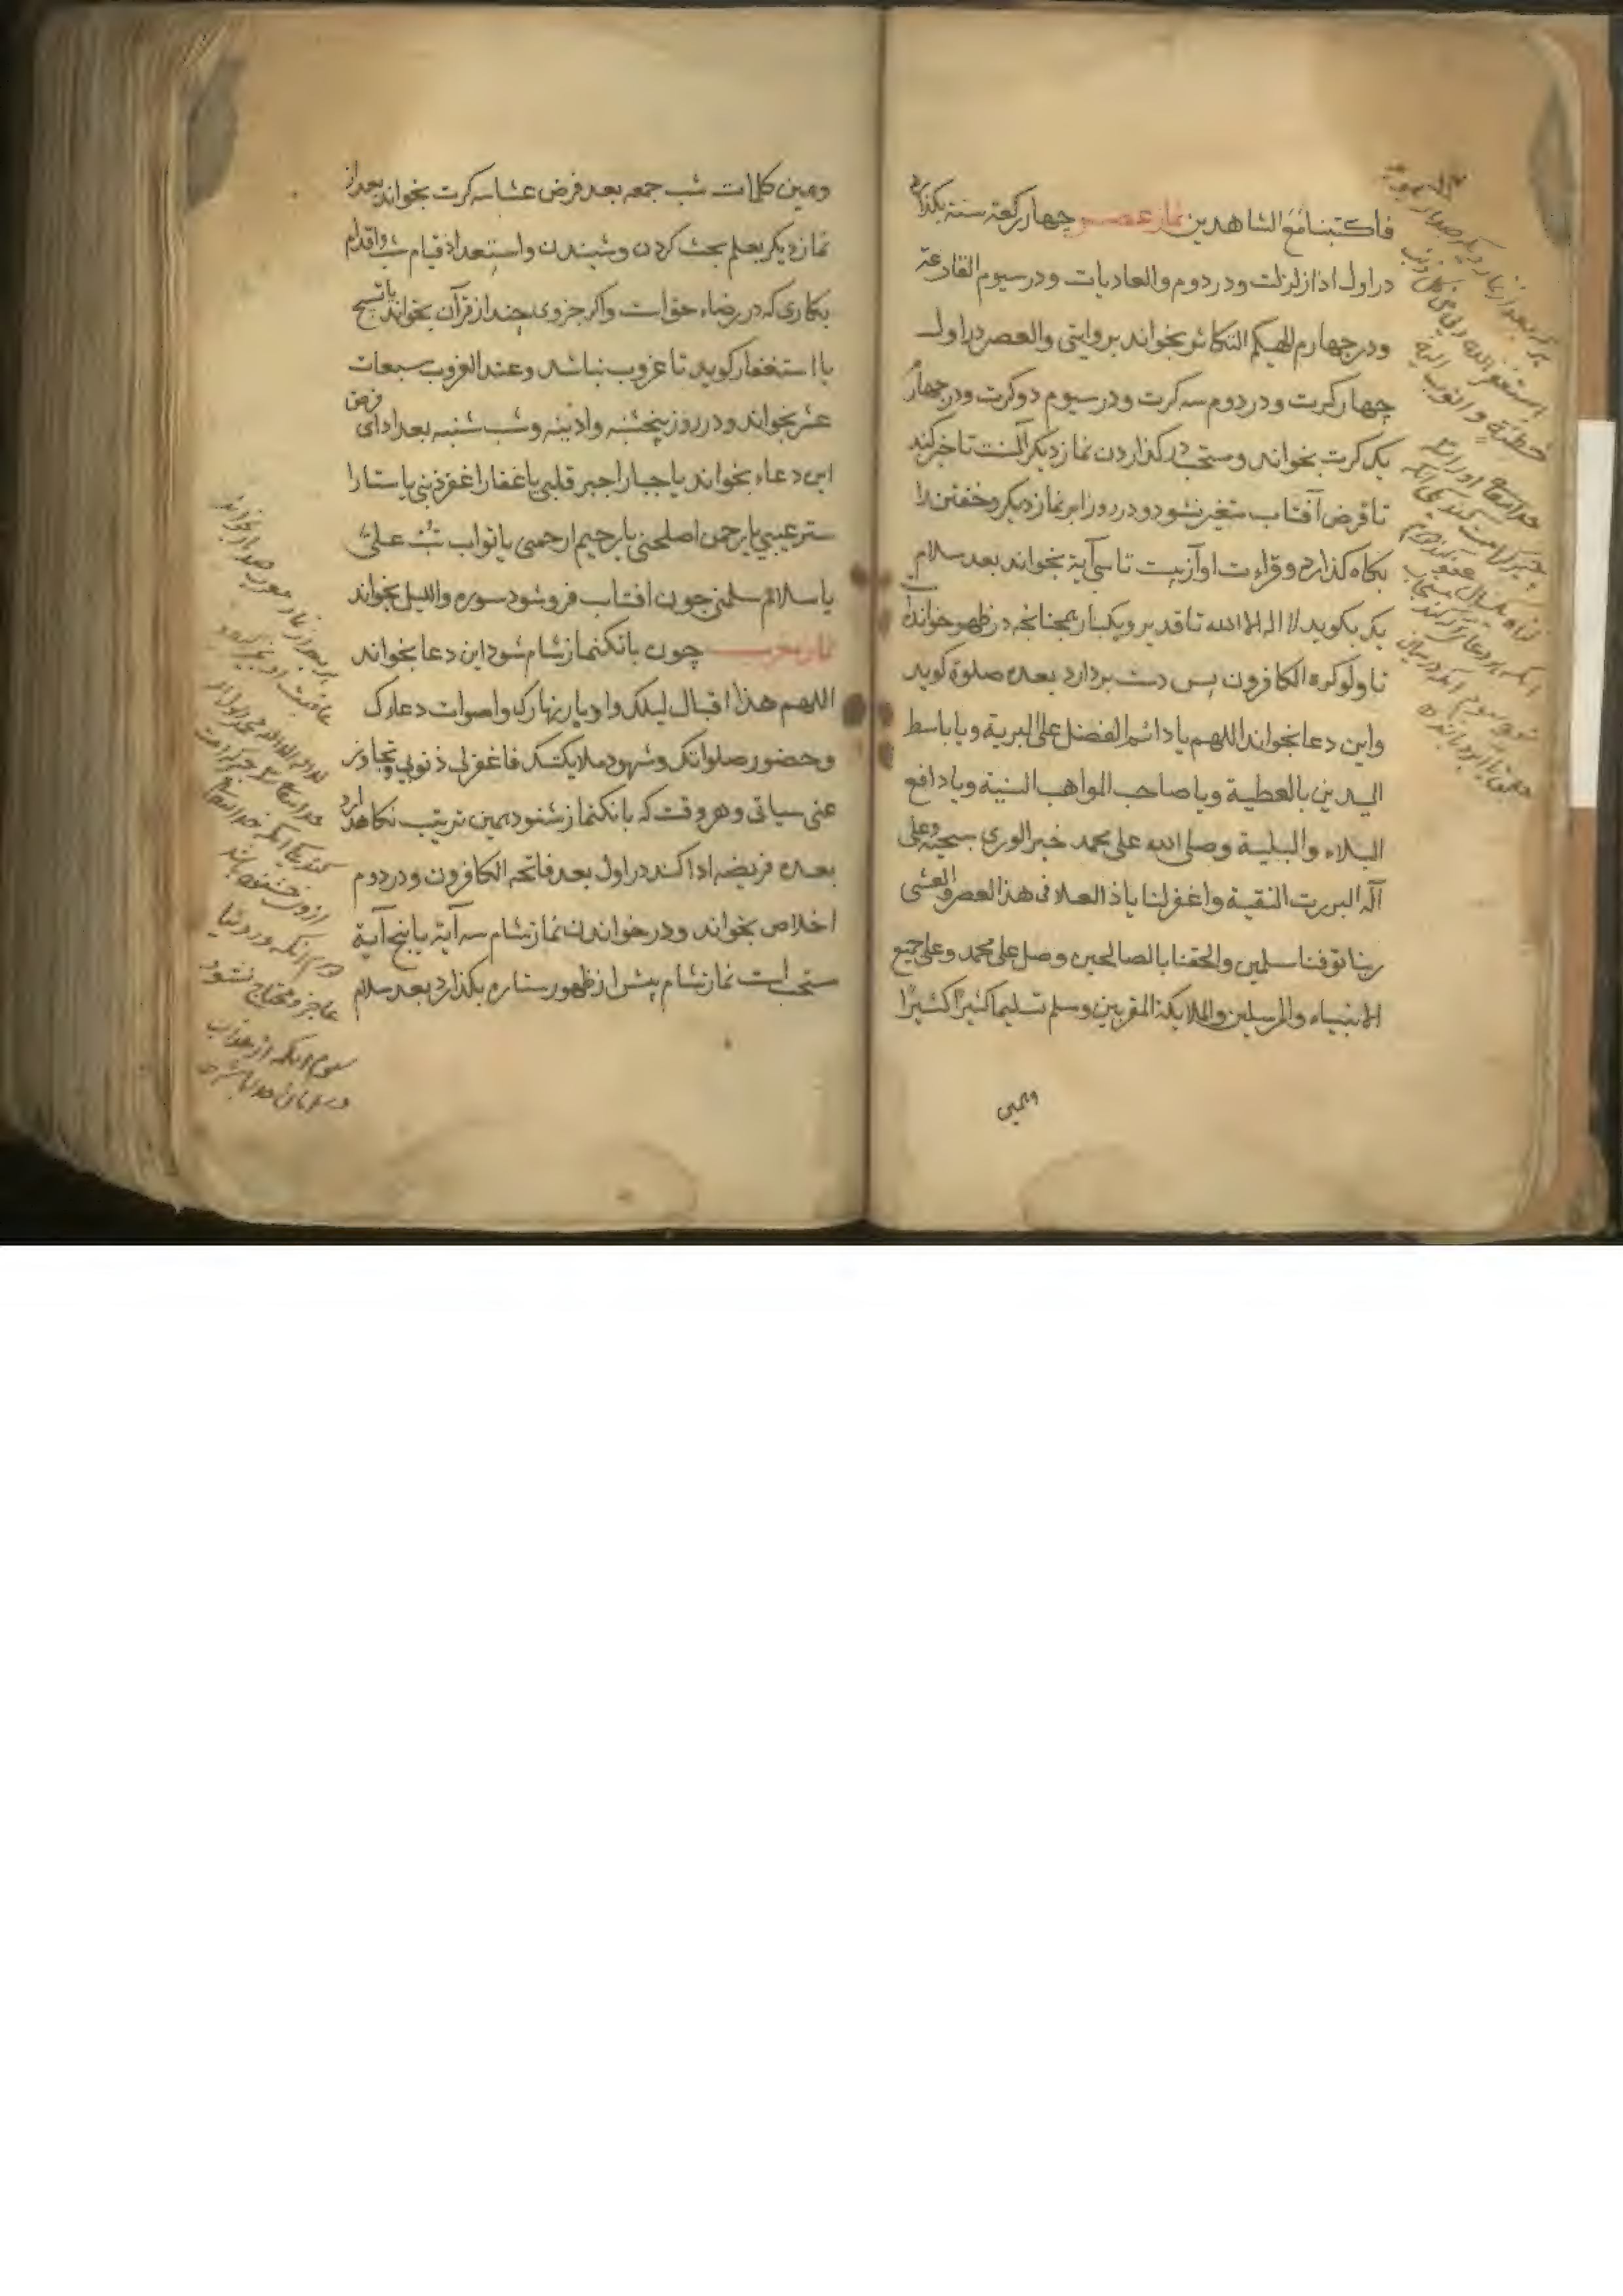 فاکتبنا مع الشاهدین نماز عصر چهار رکعة سنة بکذارد
در اول اذا زلزلت و در دوم والعادیات و در سیوم القارعة
و در چهارم الهیکم التکاثر بخواند بروایتی والعصر در اول
چهار کرت و در دوم سه کرت و در سیوم دو کرت و در چهارم
یک کرت بخواند و مستحب در کذاردن نماز دیکر آنست تاخیر کند
تا قرص آفتاب متغیر نشود و در روز ابر نماز دیکر و خفتن را
بکاه کذارد و قراءت او از بیست تا سی آیة بخواند بعد سلام
یک بکوید لا اله الا الله تا قدیر و یکبار همچنانچه در ظهر خوانده
تا ولو کره الکافرون پس دست بردارد بعده صلوة کوید
و این دعا بخواند اللهم یا دائم الفضل علی البریة و یا باسط
الیدین بالعطیة و یا صاحب المواهب السنیة و یا دافع
البلاء والبلیة وصلی الله علی محمد خیر الوری سجیة وعلی
آله البررت النقیة واغفرلنا یا ذا العلا فی هذا العصر والعشی
ربنا توفنا مسلمین والحقنا بالصالحین وصل علی محمد وعلی جمیع
الانبیاء والمرسلین والملایکة المقربین وسلم تسلیما کثیرا کثیرا
وهمین
هر که بعد از نماز دیکر صد بار
استغفر الله ربی من کل ذنب
خدایتعالی او را
چیز کرامت کند یکی آنکه
وهمین کلمات شب جمعه بعد فرض عشا سه کرت بخواند بعد از
نماز دیکر بعلم بحث کردن و شنیدن و استعداد قیام شب و اقدام
بکاری که در رضاء حق است و اکر جزوی چند از قرآن بخواند یا تسبیح
یا استغفار کوید تا غروب نباشد و عند الغروب مسبعات
عشر بخواند و در روز پنجشنبه و ادینه و شب شنبه بعد ادای فرض
این دعاء بخواند یا جبار اجبر قلبی یا غفار اغفر ذنبی یا ستار ا
ستر عیبی یا رحمن اصلحنی یا رحیم ارحمنی یا تواب تب علی
یا سلام سلمنی چون افتاب فرو شود سوره واللیل بخواند
نماز مغرب چون بانکنماز شام شود این دعا بخواند
اللهم هذا اقبال لیلک وادبار نهارک واصوات دعاءک
وحضور صلواتک وشهود ملایکتک فاغفرلی ذنوبی وتجاوز
عنی سیاتی و هر وقت که بانکنماز شنود همین ترتیب نکاهدارد
بعده فریضه ادا کند در اول بعد فاتحه الکافرون و در دوم
اخلاص بخواند و در خواندن نماز شام سه آیة یا پنج آیة
مستحب است نماز شام پیش از ظهور ستاره بکذارد بعد سلام
هر که بعد از نماز مغرب صد بار بخواند
لا اله الا الله محمد رسول الله
خدایتعالی چیز کرامت
کند یکی آنکه خدایتعالی
از وی خشنود باشد
دوم آنکه در دنیا
عاجز و محتاج نشود
سیوم آنکه از عذاب